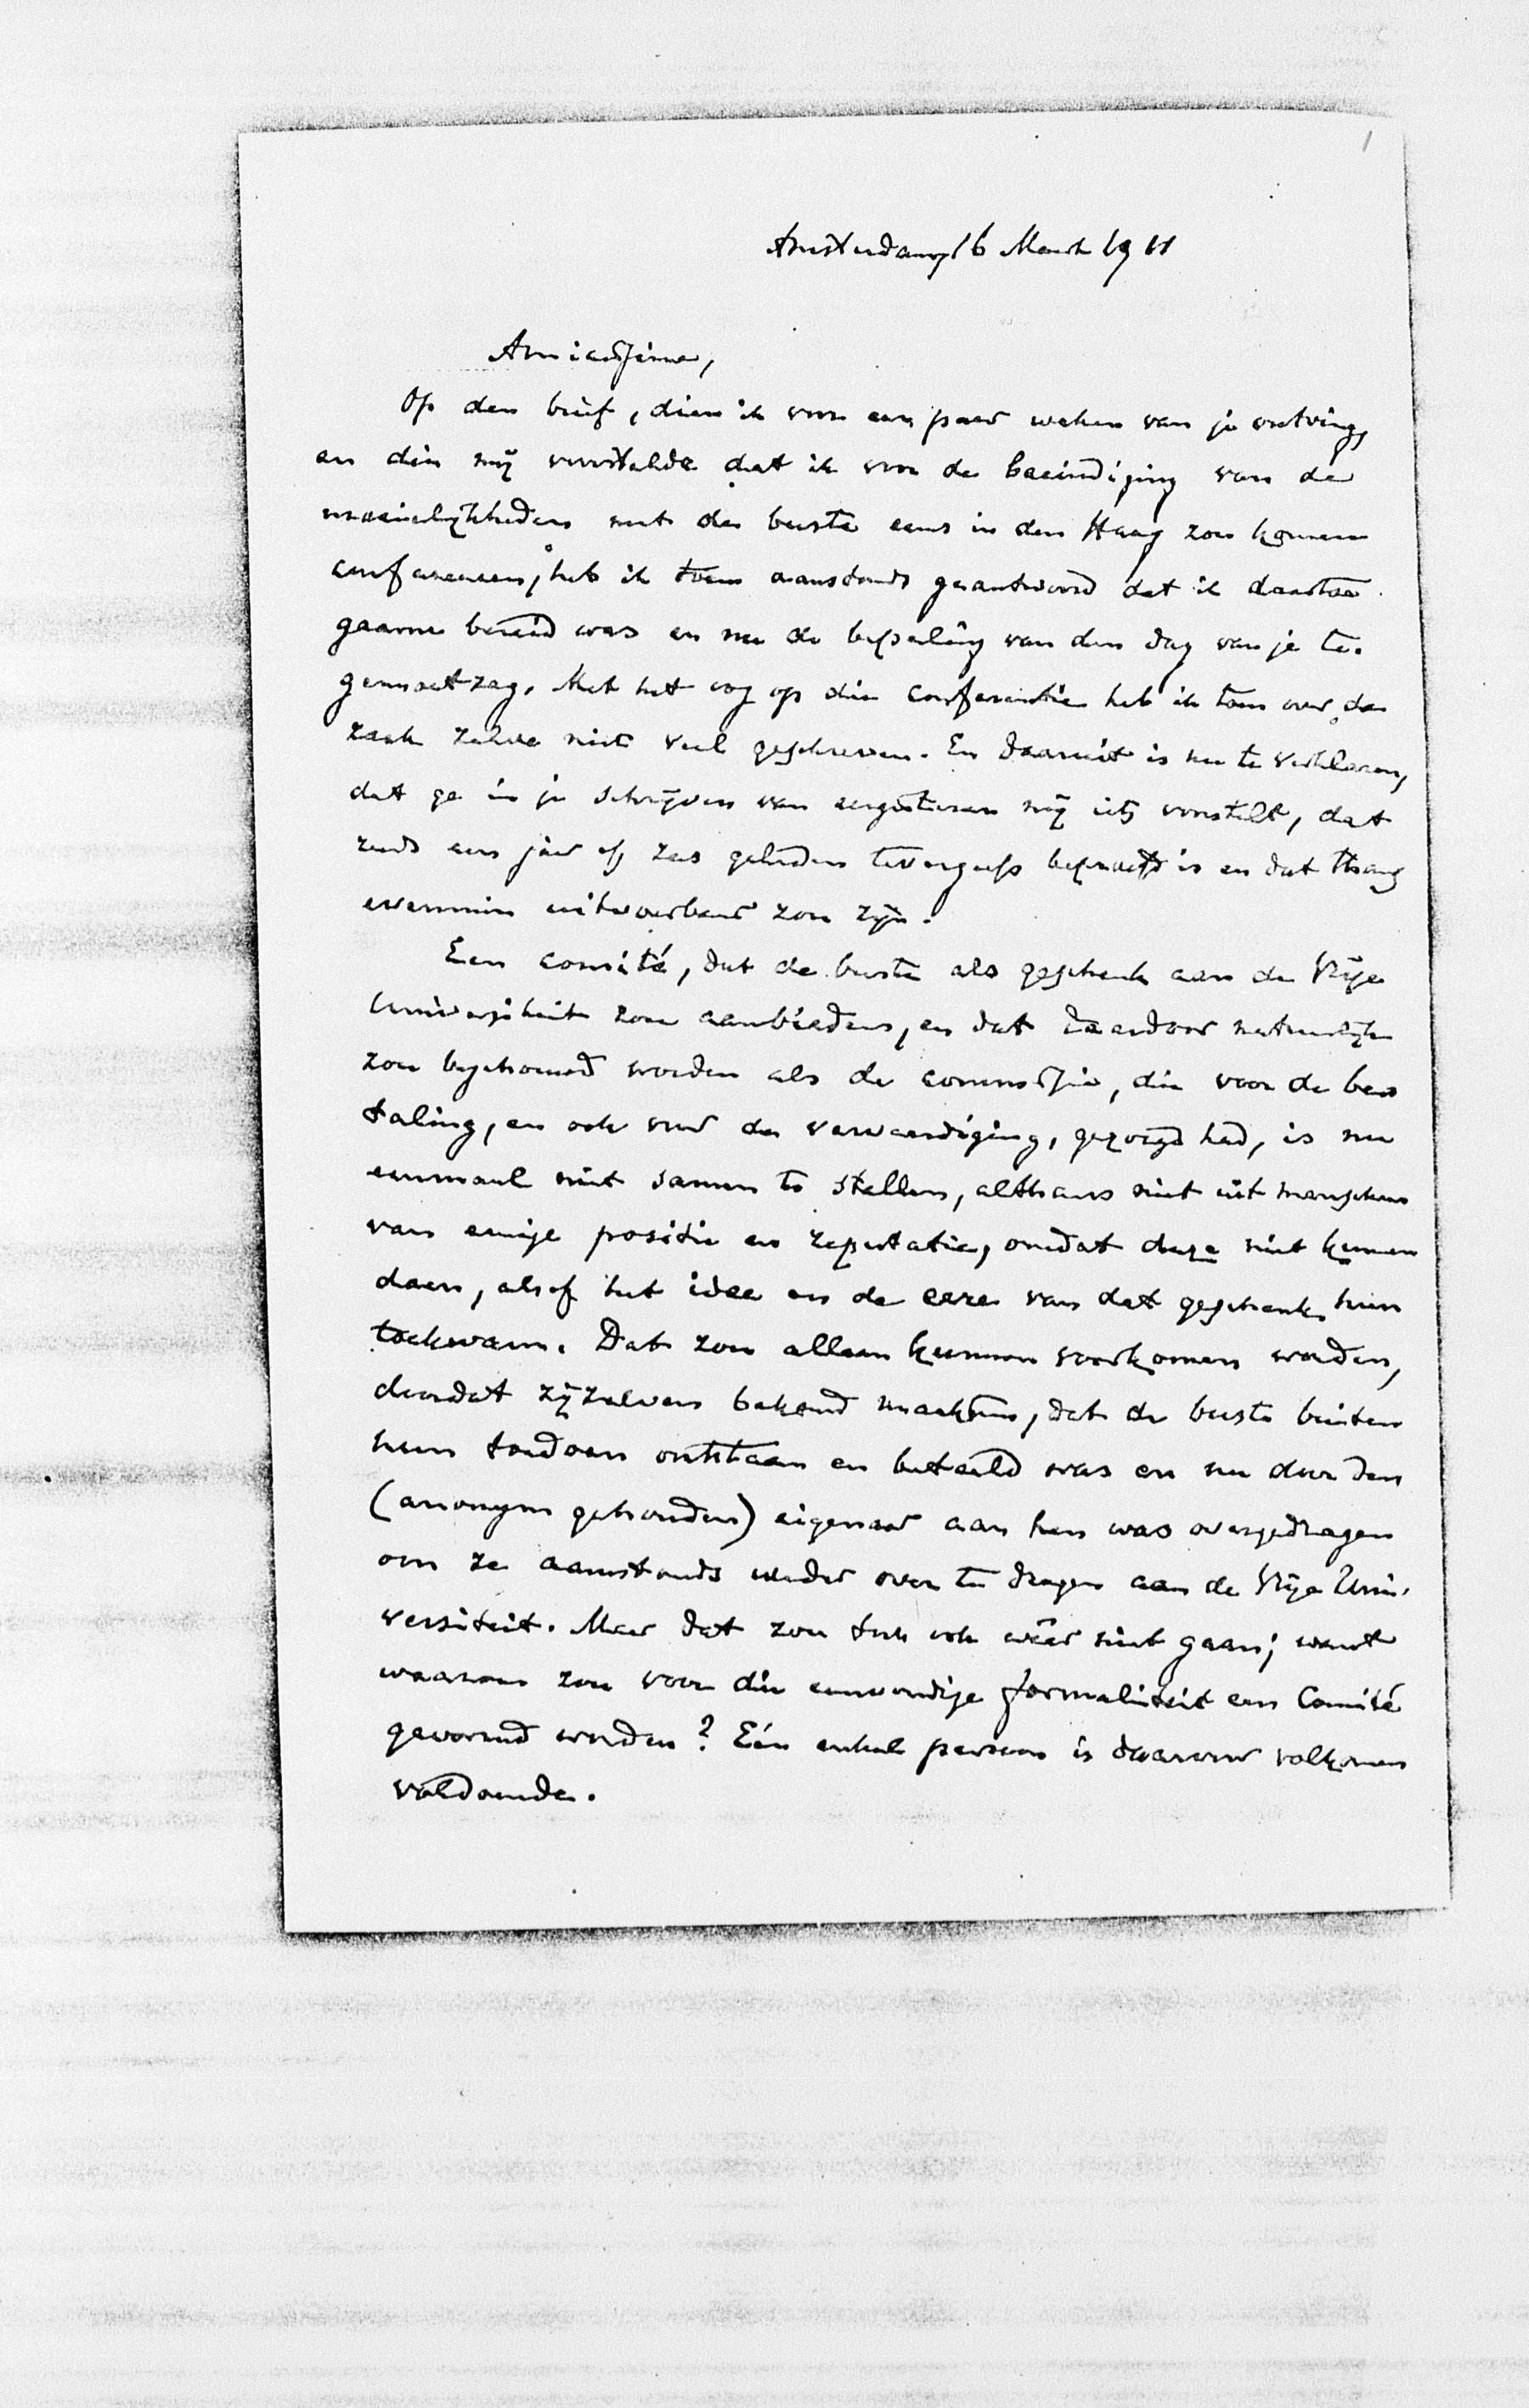 1
Amsterdam, 16 Maart 1911
Amicissime,
Op den brief, dien ik voor een paar weken van je ontving,
en die mij voorstelde dat ik voor de beeindiging van de
moeielijkheden met de buste eens in den Haag zou komen
confereeren, heb ik toen aanstonds geantwoord dat ik daartoe
gaarne bereid was en nu de bepaling van den dag van je te-
gemoet zag. Met het oog op die conferentie heb ik toen over de
zaak zelve niet veel geschreven. En daaruit is nu te verklaren,
dat ge in je schrijven van eergisteren mij iets voorstelt, dat
reeds een jaar of zes geleden tevergeefs beproefd is en dat thans
evenmin uitvoerbaar zou zijn.
Een comité, dat de buste als geschenk aan de Vrije
Universiteit zou aanbieden, en dat daardoor natuurlijk
zou beschouwd worden als de commissie, die voor de be-
taling, en ook voor de vervaardiging, gezorgd had, is nu
eenmaal niet samen te stellen, althans niet uit menschen
van eenige positie en reputatie, omdat deze niet kunnen
doen, alsof het idee en de eere van dat geschenk hun
toekwam. Dat zou alleen kunnen voorkomen worden,
doordat zij zelven bekend maakten, dat de buste buiten
hun toedoen ontstaan en betaald was en nu door den
(anonym gehouden) eigenaar aan hen was overgedragen
om ze aanstonds weder over te dragen aan de Vrije Uni-
versiteit. Maar dat zou toch ook wéér niet gaan; want
waarom zou voor die eenvoudige formaliteit een Comité
gevormd worden? Eén enkel persoon is daarvoor volkomen
voldoende.